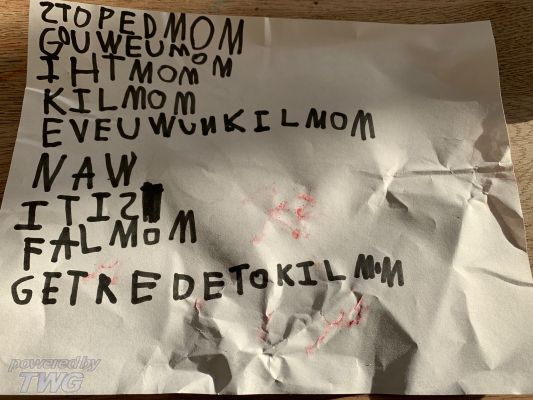 STOPEDMOM
GOUWEUMOM
IHTMOMM
KILMOM
EVEUWUNKILMOM
NAW
ITIS
FALMOM
GETREDETOKILMOM
powered by
TWG